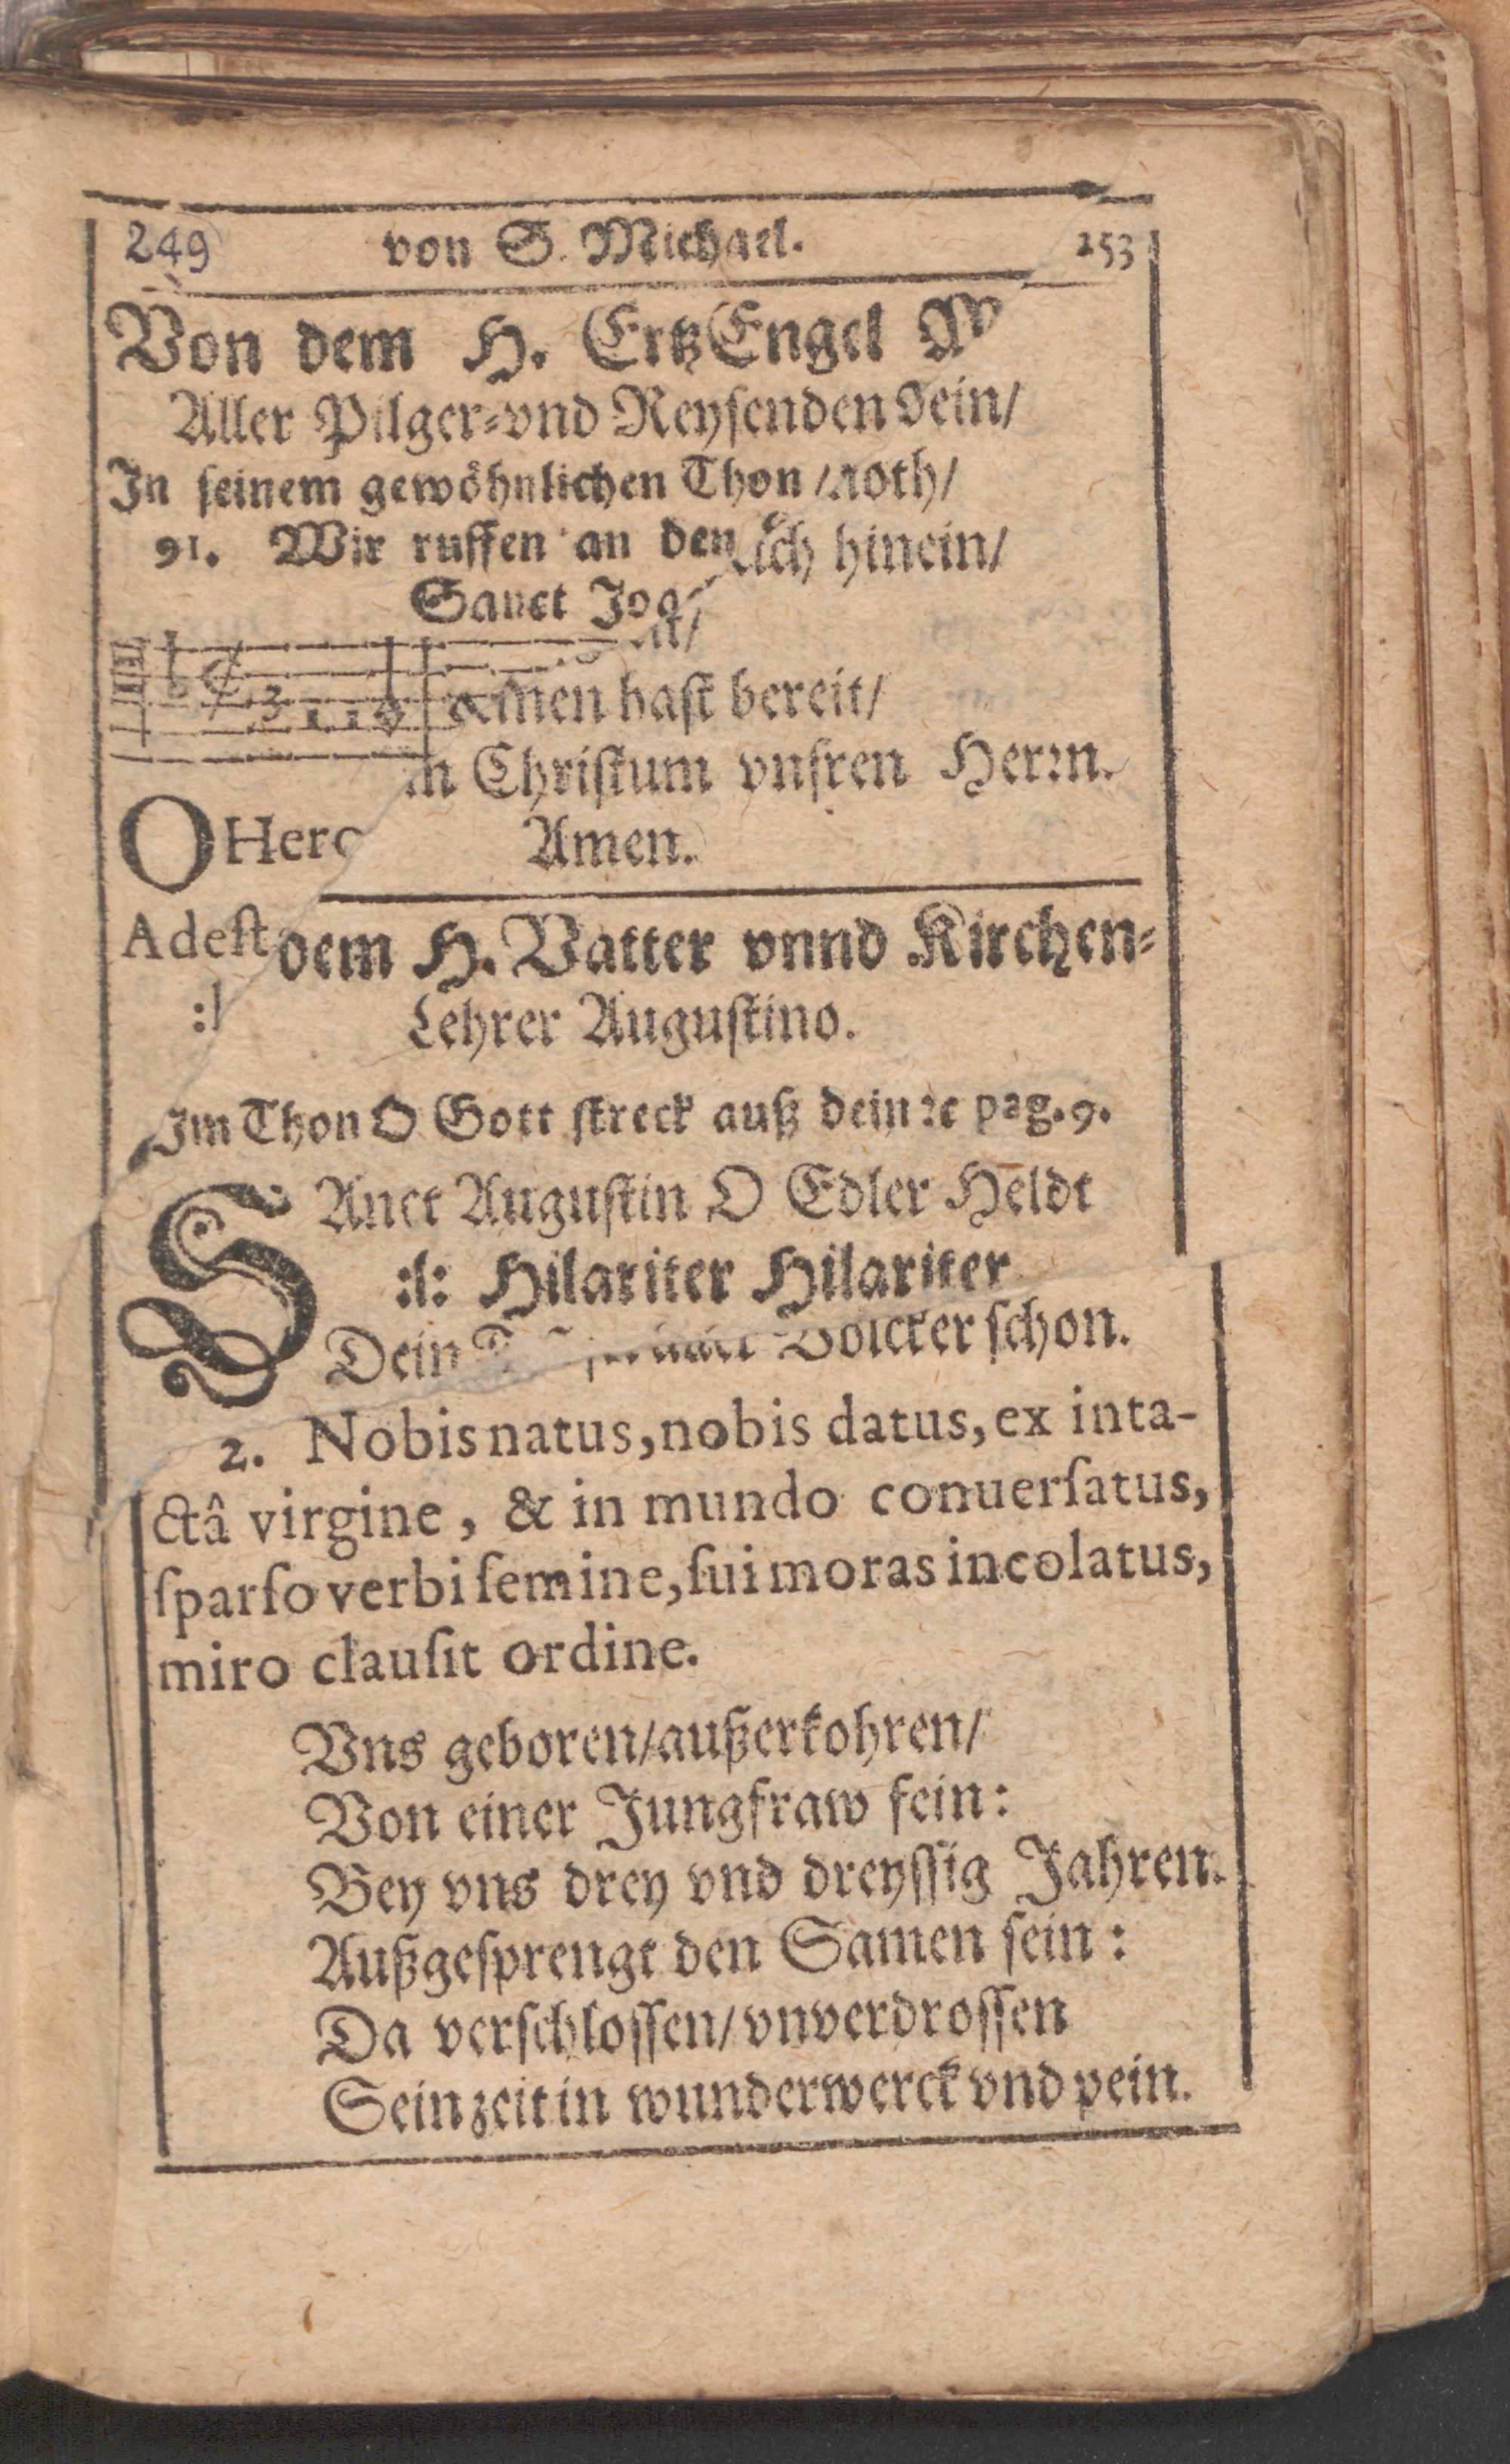 249 von S. Michael. 253
Von dem H. ErtzEngel
Aller Pilger-vnd Reysenden
In seinem gewöhnlichen Thon /
91. Wir ruffen an den hinein/
Sanct
hast bereit/
Christum vnsren Herrn.
O
Amen.
Adest dem H. Vatter vnnd Kirchen-
:| Lehrer Augustino.
Im Thon O Gott streck auß dein ꝛc pag. 9.
SAnct Augustin O Edler Heldt
:|: Hilariter Hilariter
Dein Völcker schon.
2. Nobis natus, nobis datus, ex inta-
ctâ virgine, & in mundo conuerſatus,
ſparſo verbi ſemine, ſui moras incolatus,
miro clauſit ordine.
Vns geboren/außerkohren/
Von einer Jungfraw fein:
Bey vns drey vnd dreyſſig Jahren.
Außgeſprengt den Samen ſein:
Da verſchloſſen/vnverdroſſen
Sein zeit in wunderwerck vnd pein.